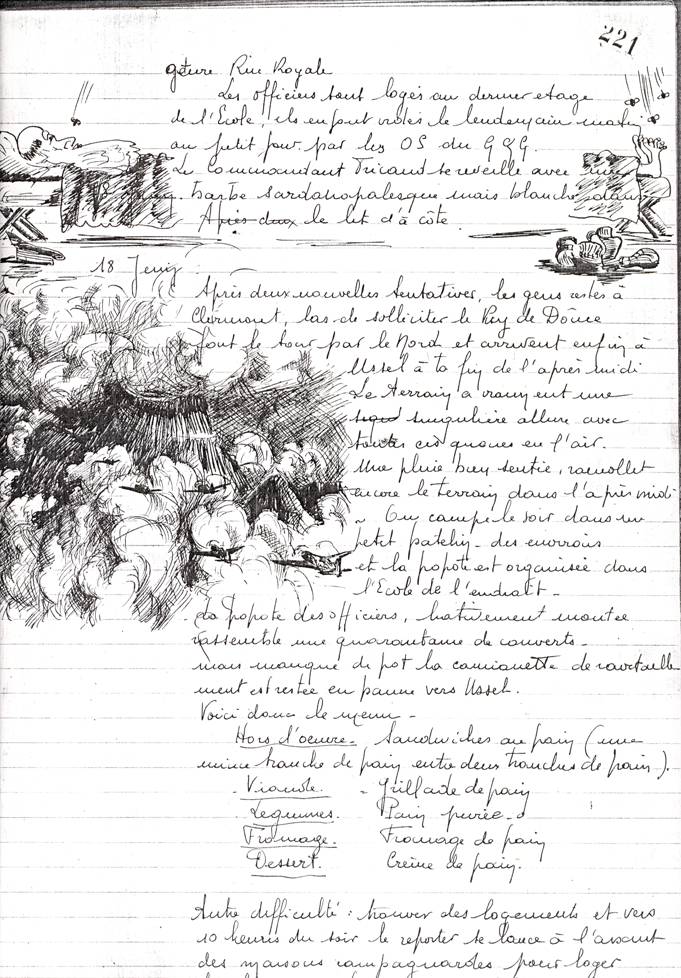 221
geure Rue Royale
Les officiers sont logés au dernier etage
de l'Ecole, ils en font vidés le lendemain matin
au petit jour par les OS du GQG.
Le Commandant Tricaud se reveille avec une
barbe sardanapalesque mais blanche dans
Après deux le lit d'à côté.
18 Juin
Après deux nouvelles tentatives, les gens restés à
Clermont, las de solliciter le Puy de Dôme
font le tour par le Nord et arrivent enfin à
Ussel à la fin de l'après midi
Le terrain a vraiment une
singulière allure avec
toutes ces queues en l'air.
Une pluie bien sentie, ramollit
encore le terrain dans l'après midi
- On campe le soir dans un
petit patelin des environs
et la popote est organisée dans
l'Ecole de l'endroit -
La popote des officiers, hativement montée
rassemble une quarantaine de couverts -
mais manque de pot la camionette de ravitaille
ment est restée en panne vers Ussel.
Voici donc le menu -
Hors d'oeuvre - Sandwiches au pain (une
mince tranche de pain entre deux tranches de pain).
- Viande. - Grillade de pain
- Legumes. Pain purée -
Fromage. Fromage de pain
Dessert. Crème de pain.
Autre difficulté : trouver des logements et vers
10 heures du soir le reporter se lance à l'assaut
des maisons campagnardes pour loger